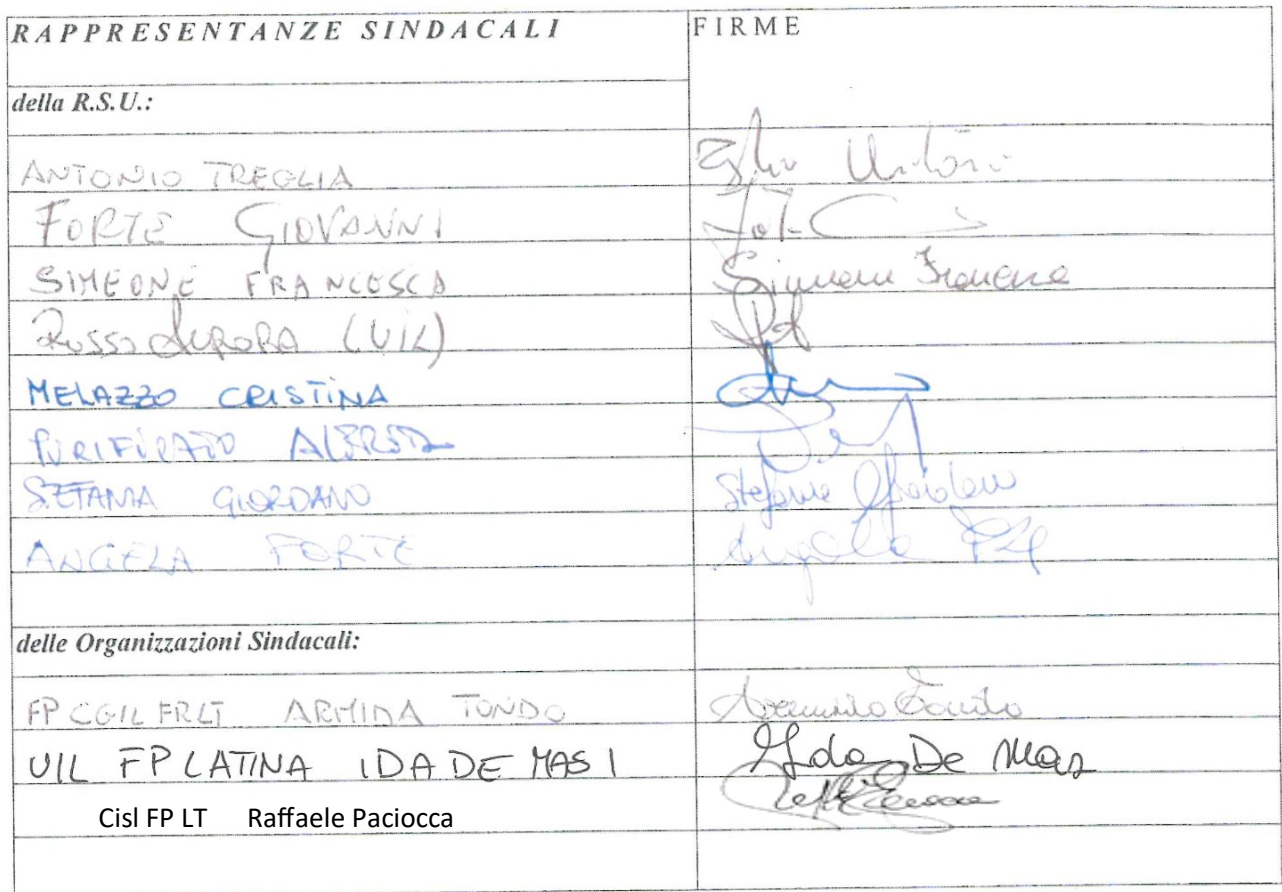 RAPPRESENTANZE SINDACALI FIRME
della R.S.U.:
ANTONIO TREGLIA
FORTE GIOVANNI
SIMEONE FRANCESCA Simeone Francesca
Russo Aurora (UIL)
MELAZZO CRISTINA
PURIFICATO
GIORDANO Stefania Giordano
ANGELA FORTE Angela
delle Organizzazioni Sindacali:
FP CGIL FRLT ARMIDA TONDO Armida Tondo
UIL FP LATINA IDA DE MASI Ida De Mas
Cisl FP LT Raffaele Paciocca